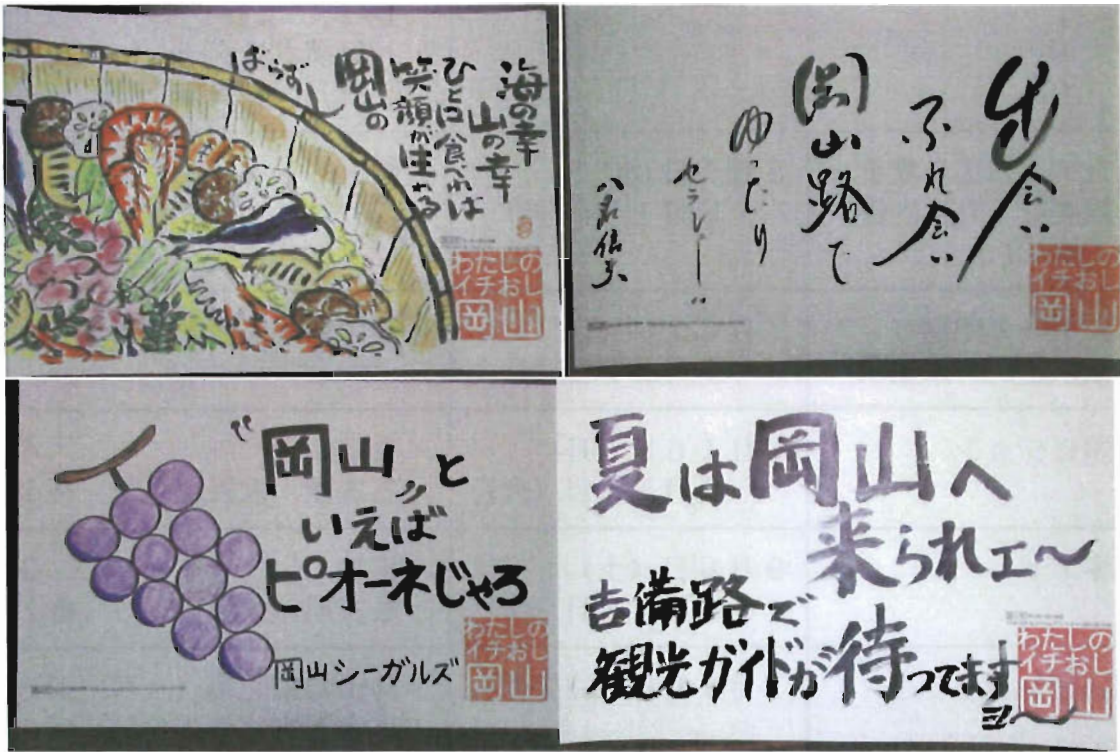 海の幸
山の幸
ひと口食べれば
笑顔が生まれる
岡山の
ばらずし
わたしの
イチおし
岡山
出会い
ふれ会い
岡山路で
ゆったり
わたしの
イチおし
岡山
“岡山”と
いえば
ピオーネじゃろ
岡山シーガルズ
わたしの
イチおし
岡山
夏は岡山へ
来られエ〜
吉備路で
観光ガイドが待ってます
ヨ〜
わたしの
イチおし
岡山